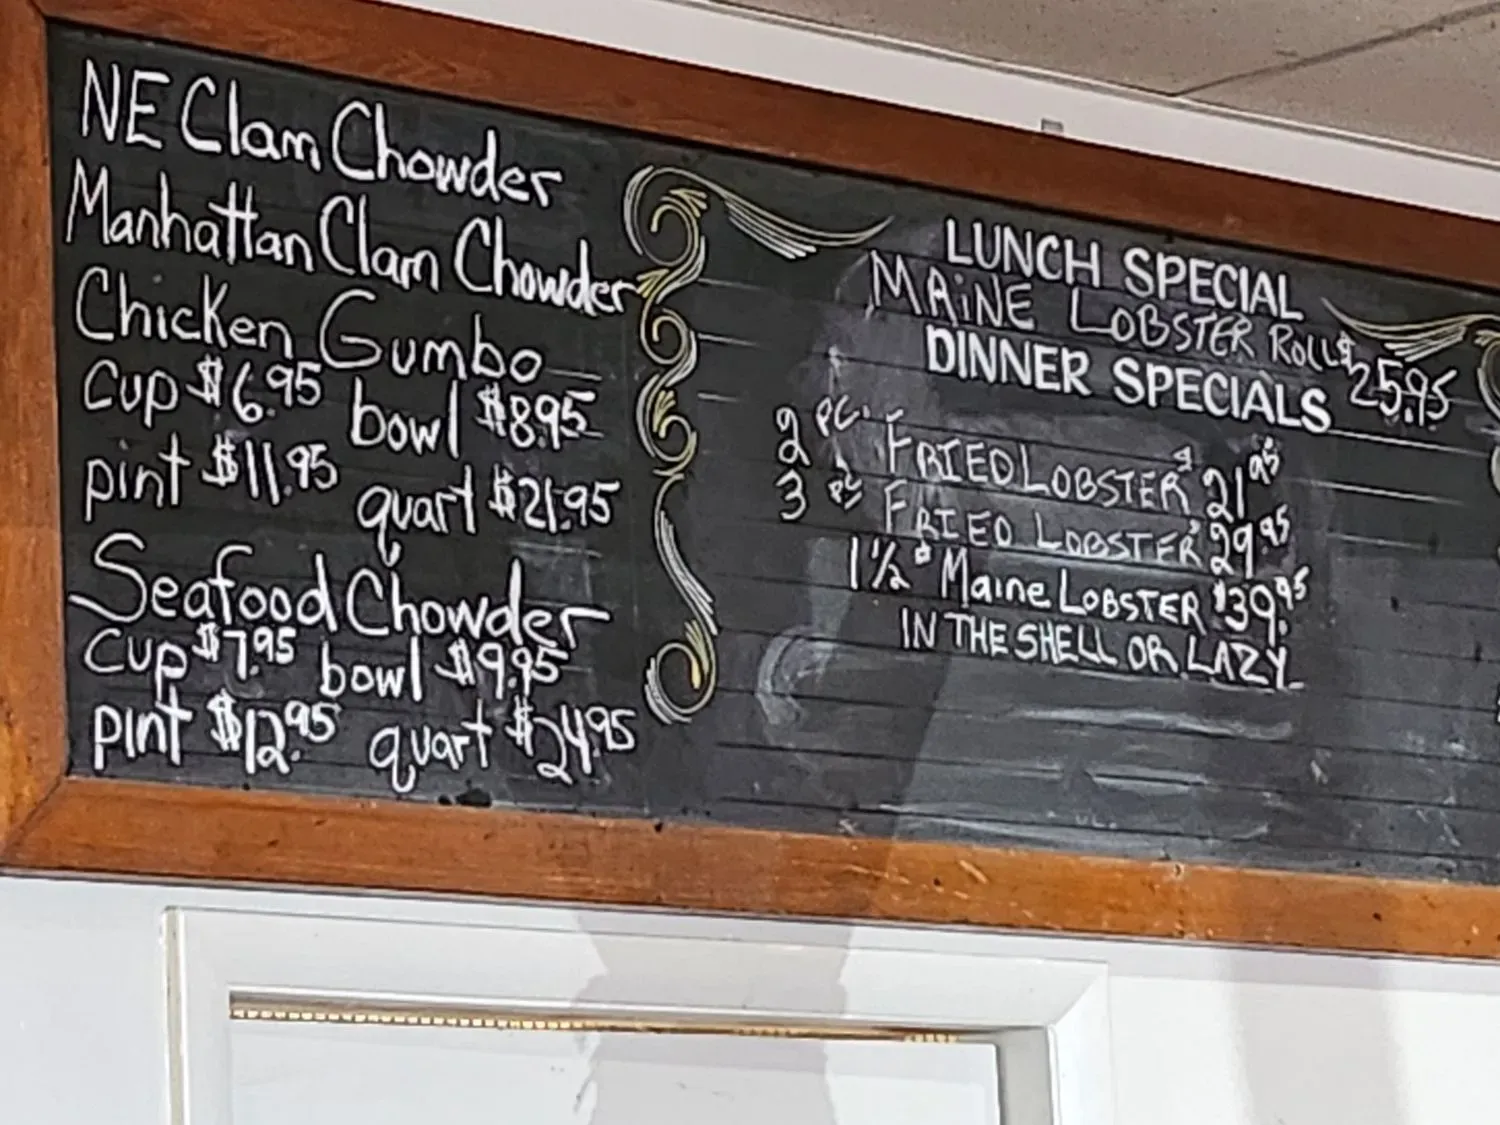 NE Clam Chowder
Manhattan Clam Chowder
Chicken Gumbo
Cup $6.95 bowl $8.95
pint $11.95 quart $21.95
Seafood Chowder
Cup $7.95 bowl $9.95
pint $12.95 quart $24.95
LUNCH SPECIAL
MAINE LOBSTER ROLL $25.95
DINNER SPECIALS
2 PC. FRIED LOBSTER $21.95
3 PC FRIED LOBSTER $29.95
1 1/2 # Maine LOBSTER $39.95
IN THE SHELL OR LAZY